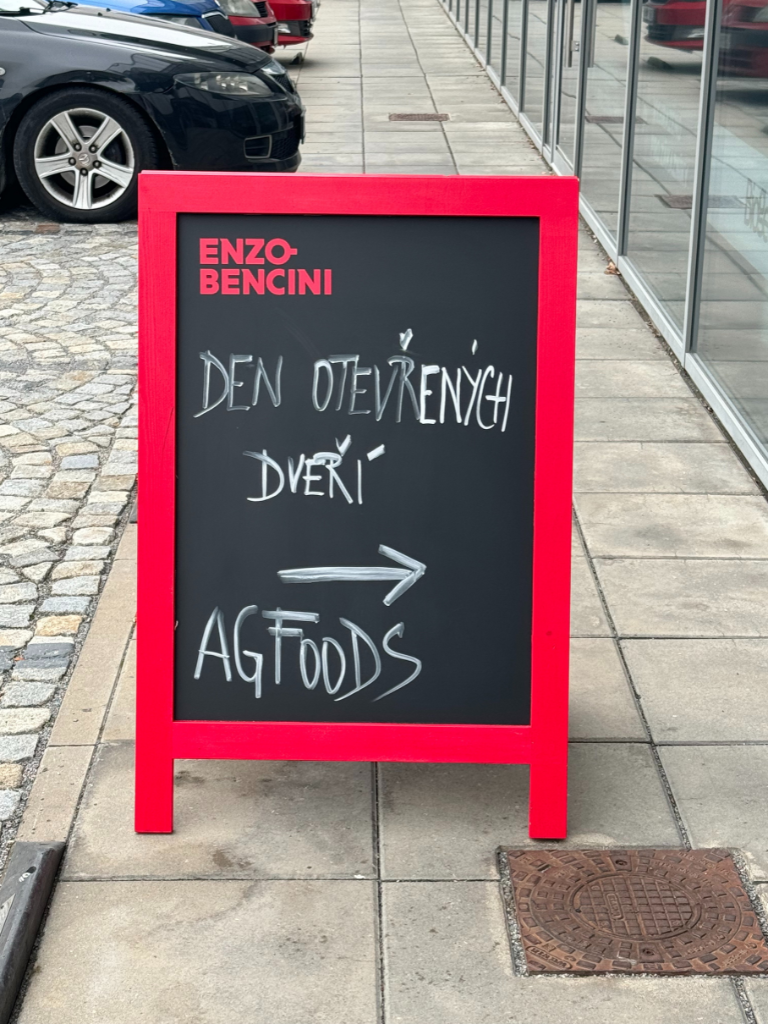 ENZO-
BENCINI
DEN OTEVŘENÝCH
DVEŘÍ
AGFOODS